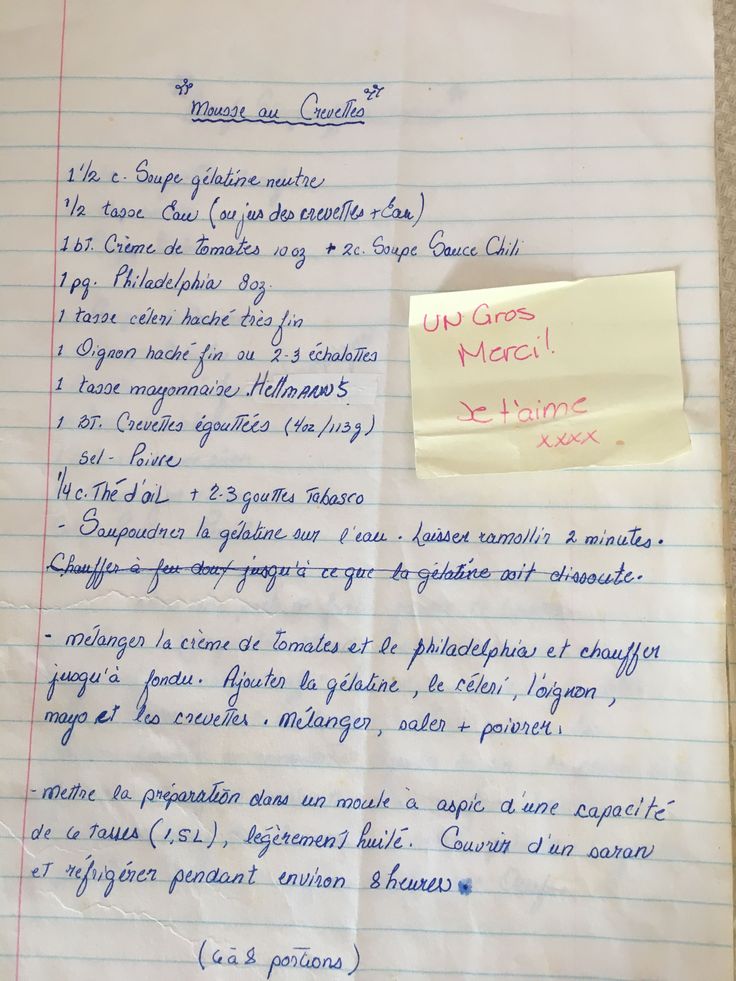 Mousse au Crevettes
1 1/2 c. Soupe gélatine neutre
1/2 tasse Eau (ou jus des crevettes + Eau)
1 bt. Crème de tomates 10 oz + 2c. Soupe Sauce Chili
1 pq. Philadelphia 8oz.
1 tasse céleri haché très fin
1 Oignon haché fin ou 2-3 échalottes
1 tasse mayonnaise Hellmann's
1 BT. Crevettes égouttées (4oz/113g)
sel - Poivre
1/4 c. Thé d'ail + 2-3 gouttes Tabasco
- Saupoudrer la gélatine sur l'eau. Laisser ramollir 2 minutes.
Chauffer à feu doux jusqu'à ce que la gélatine soit dissoute.
- mélanger la crème de tomates et le philadelphia et chauffer
jusqu'à fondu. Ajouter la gélatine, le céleri, l'oignon,
mayo et les crevettes. Mélanger, saler + poivrer.
- mettre la préparation dans un moule à aspic d'une capacité
de 6 tasses (1,5L), légèrement huilé. Couvrir d'un saran
et réfrigérer pendant environ 8 heures.
(6 à 8 portions)
UN Gros
Merci!
Je t'aime
xxxx